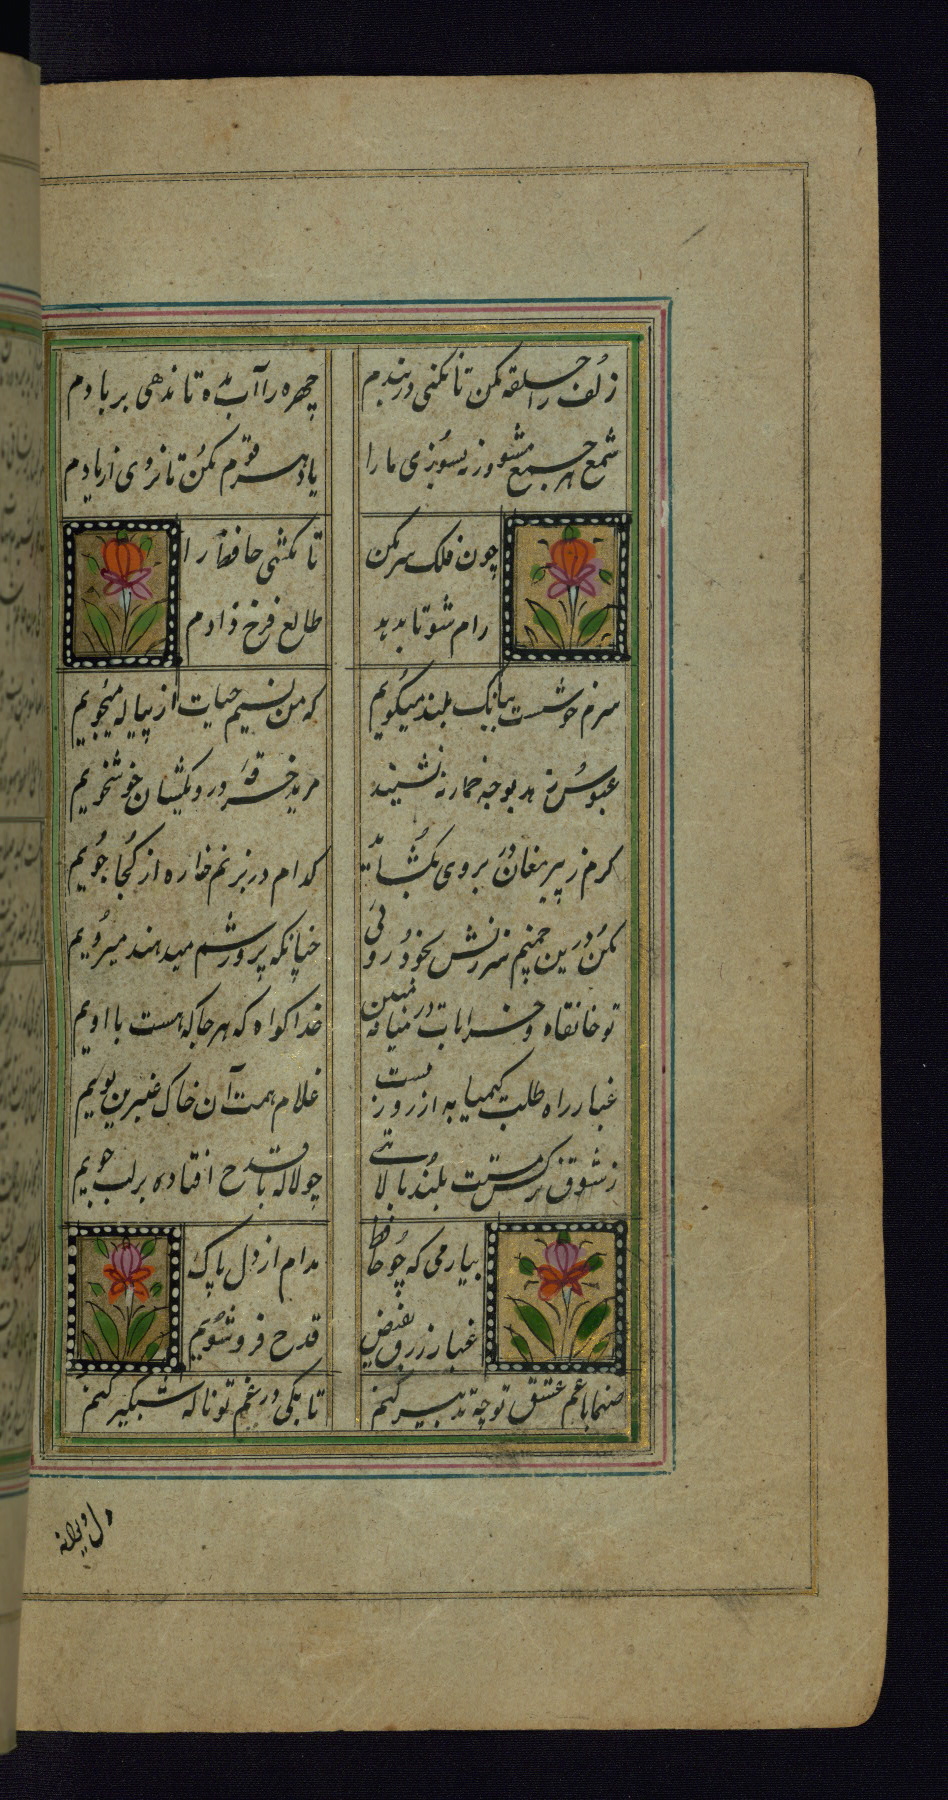 زلف را حلقه مکن تا نکنی در بندم چهره را آب بده تا ندهی بر بادم
شمع هر جمع مشو ورنه بسوزی ما را یاد هر قوم مکن تا نروی از یادم
چون فلک سر مکن تا نکشی حافظ را
رام شو تا بدهد طالع فرخ دادم
سرم خوشست ببانک بلند میگویم که من نسیم حیات از پیاله میجویم
عبوس زهد بوجه خمار ننشیند مرید خرقه دردی کشان خوشخویم
کرم ز پیر مغان در بروی بکشاید کدام در بزنم چاره از کجا جویم
مکن درین چمنم سرزنش بخود روئی چنانکه پرورشم میدهند میرویم
تو خانقاه و خرابات در میانه مبین خدا کواه که هر جا که هست با اویم
غبار راه طلب کیمیا به از روز یست غلام همت آن خاک عنبرین بویم
ز شوق نرکس مست بلند بالائی چو لاله با قدح افتاده بر لب جویم
بیار می که چو حافظ مدام از دل پاک
غبار زرق بفیض قدح فرو شویم
صنما با غم عشق تو چه تدبیر کنم تا بکی در غم تو ناله شبکیر کنم
دل دیوانه